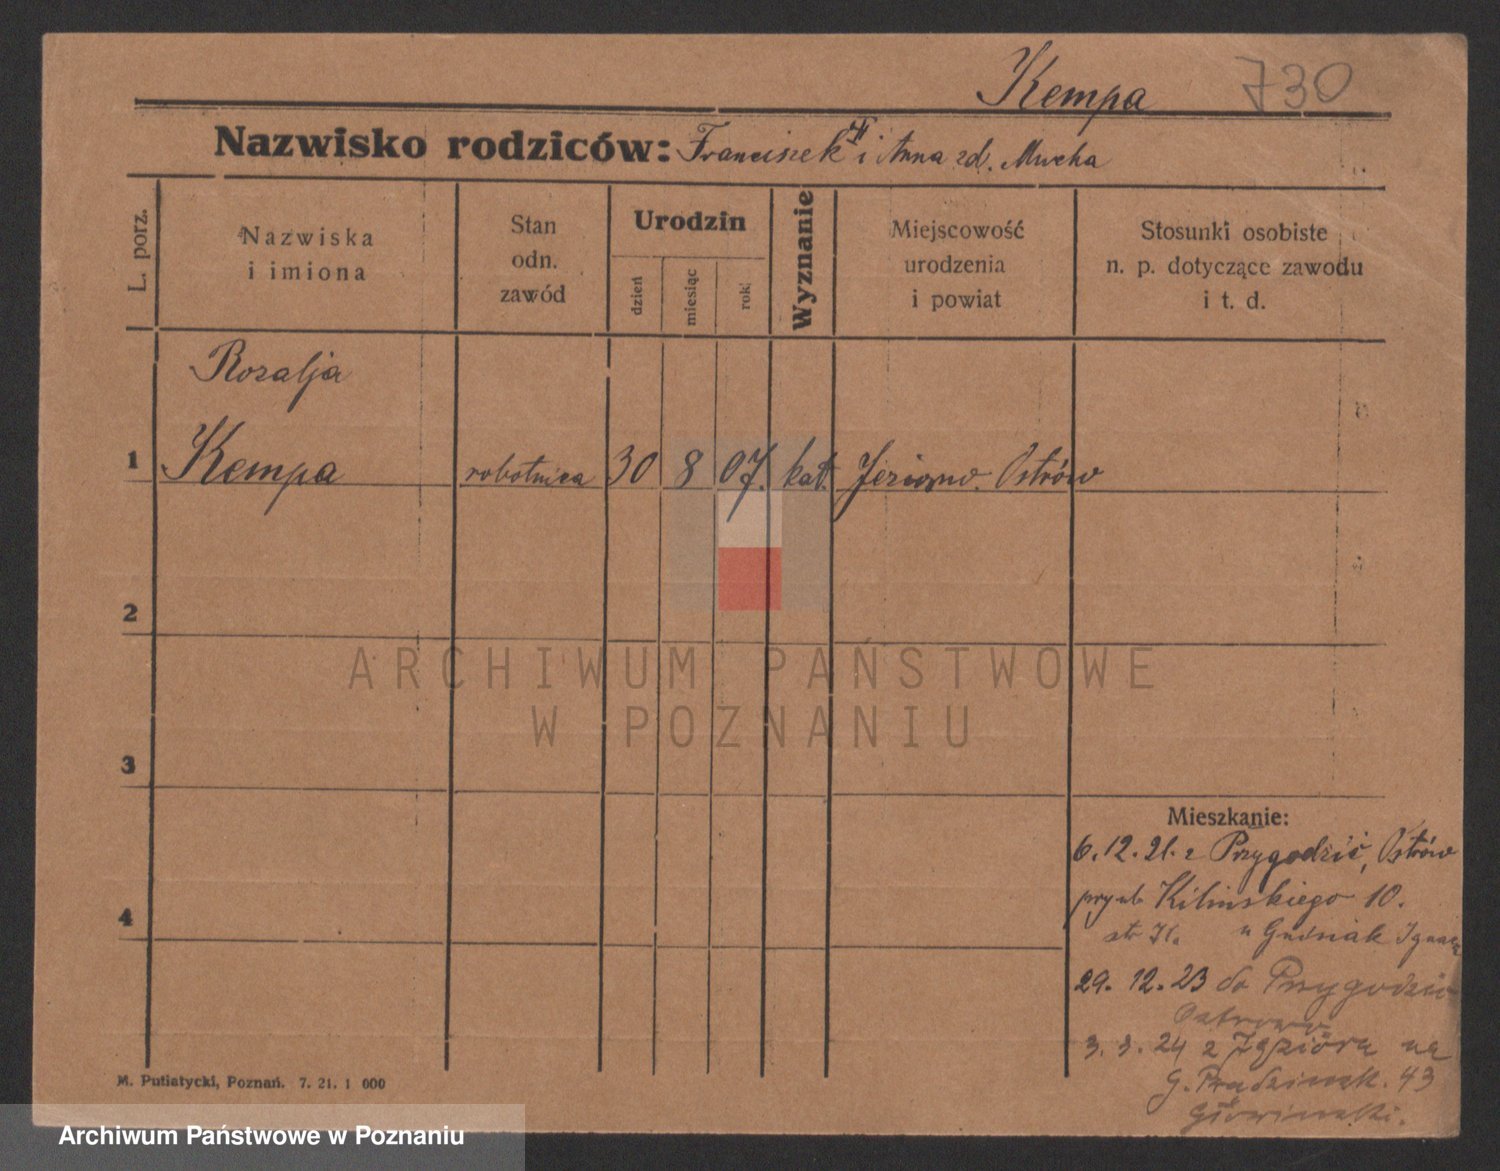 Kempa 730
Nazwisko rodziców: Franciszek i Anna zd. Mucha
L. porz.
Nazwiska
i imiona
Stan
odn.
zawód
Urodzin
dzień
miesiąc
rok
Wyznanie
Miejscowość
urodzenia
i powiat
Stosunki osobiste
n. p. dotyczące zawodu
i t. d.
Rozalja
1 Kempa robotnica 30 8 07. kat. Ostrów
2
ARCHIWUM PAŃSTWOWE
W POZNANIU
3
Mieszkanie:
6.12.21. z Przygodzić, Ostrów
przy ul. Kilinskiego 10.
4
u Ignac
29.12.23 do Przygodzic
Ostrowo
24 z na
43
M. Putiatycki, Poznań. 7. 21. 1 000
Archiwum Państwowe w Poznaniu